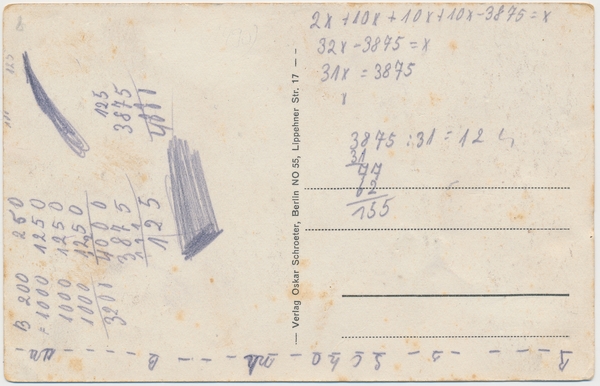 2x + 10x + 10x + 10x - 3875 = x
32x - 3875 = x
31x = 3875
x
3875 : 31 = 12
31
77
62
155
— Verlag Oskar Schroeter, Berlin NO 55, Lippehner Str. 17 —
125
3875
4000
B 200 250
= 1000 1250
1000 1250
1000 1250
3200 4000
3875
125
123